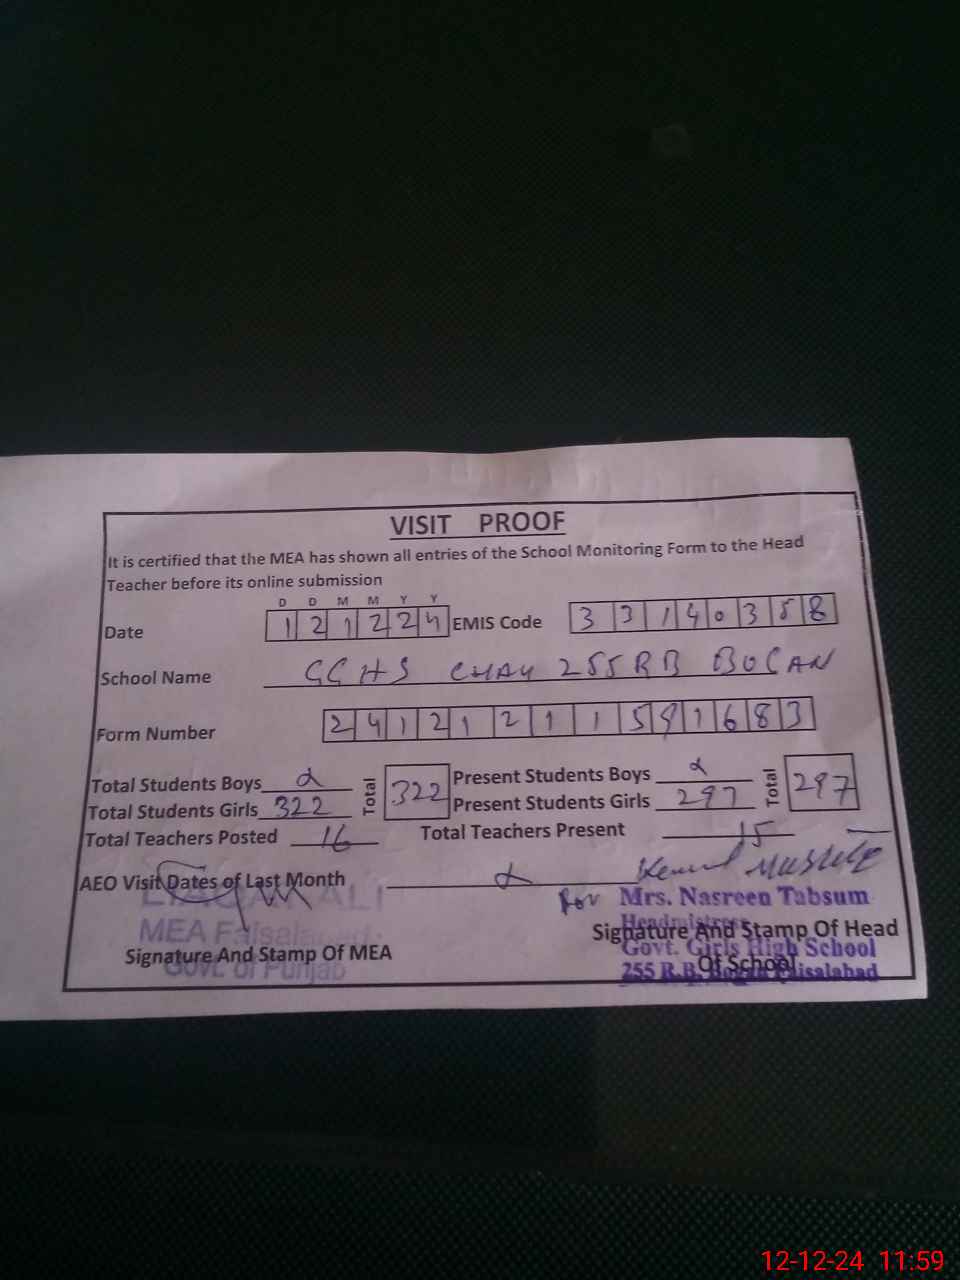 VISIT PROOF
It is certified that the MEA has shown all entries of the School Monitoring Form to the Head
Teacher before its online submission
D D M M Y Y
Date 121224 EMIS Code 33140358
School Name GGHS CHAK 255 RB BOGAN
Form Number 241212111591683
Total Students Boys Total 322 Present Students Boys Total 297
Total Students Girls 322 Present Students Girls 297
Total Teachers Posted 16 Total Teachers Present 15
AEO Visit Dates of Last Month
LIAQAT ALI
MEA Faisalabad
Govt. of Punjab
Signature And Stamp Of MEA
For Mrs. Nasreen Tabsum
Headmistress
Govt. Girls High School
255 R.B. Faisalabad
Signature And Stamp Of Head
Of School
12-12-24 11:59